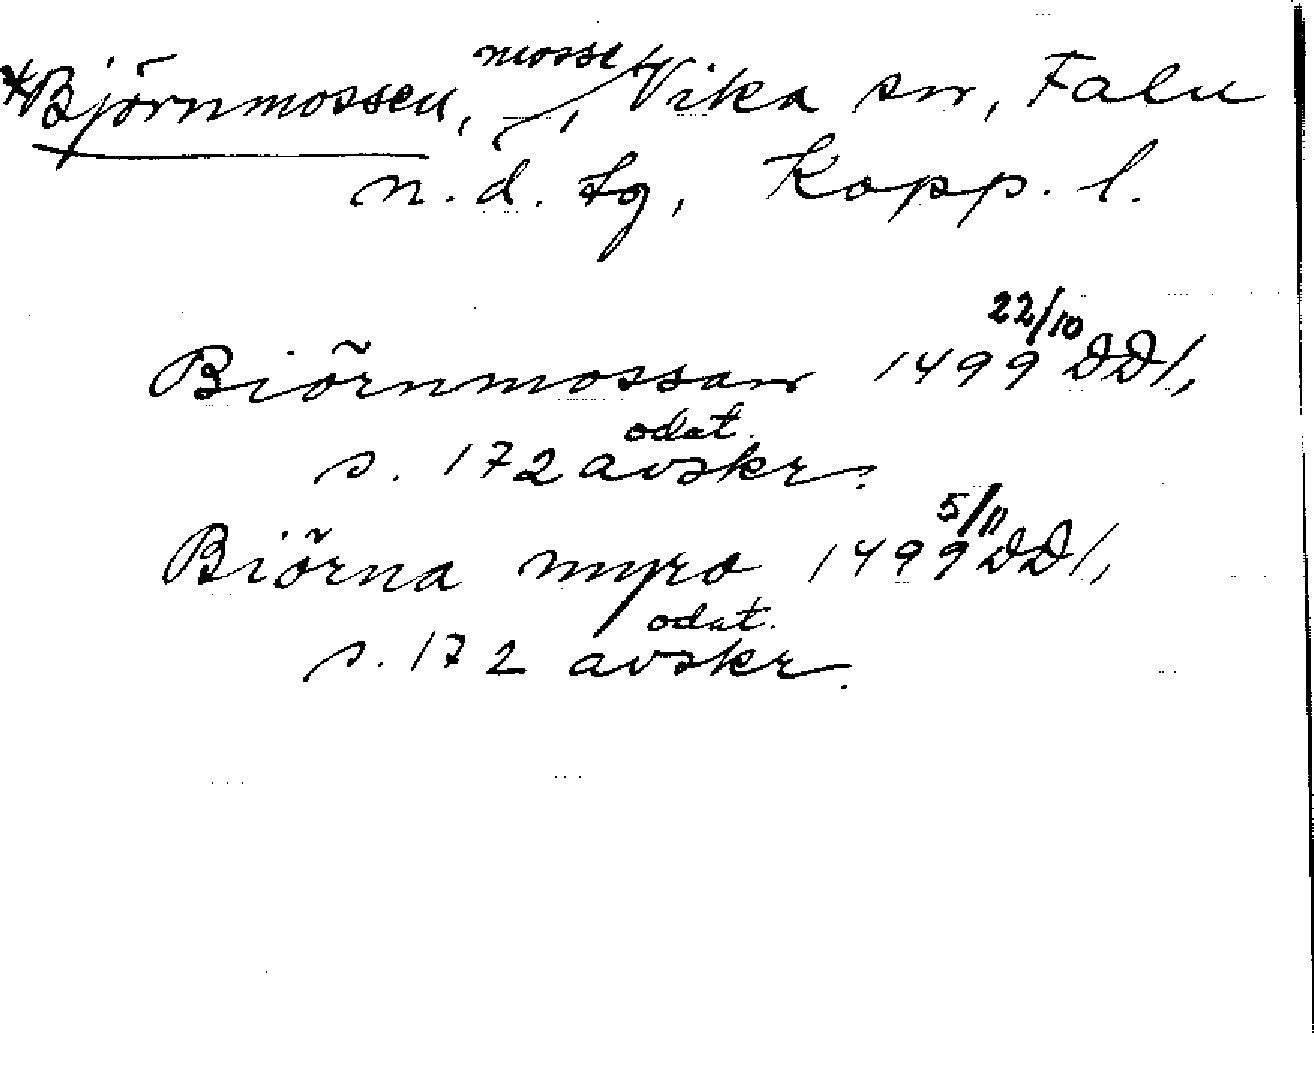 *Björnmossen, mosse, Vika sn, Falu
n. d. tg, Kopp. l.
Biörnmossan 1499 22/10 DD1,
s. 172 odat. avskr.
Biörna myro 1499 5/11 DD1,
s. 172 odat. avskr.